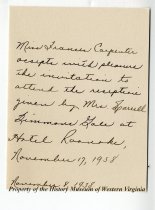 Miss Frances Carpenter
accepts with pleasure
the invitation to
attend the reception
given by Mrs
Simmons Gale at
Hotel Roanoke,
November 17, 1938
November 8, 1938
Property of the History Museum of Western Virginia